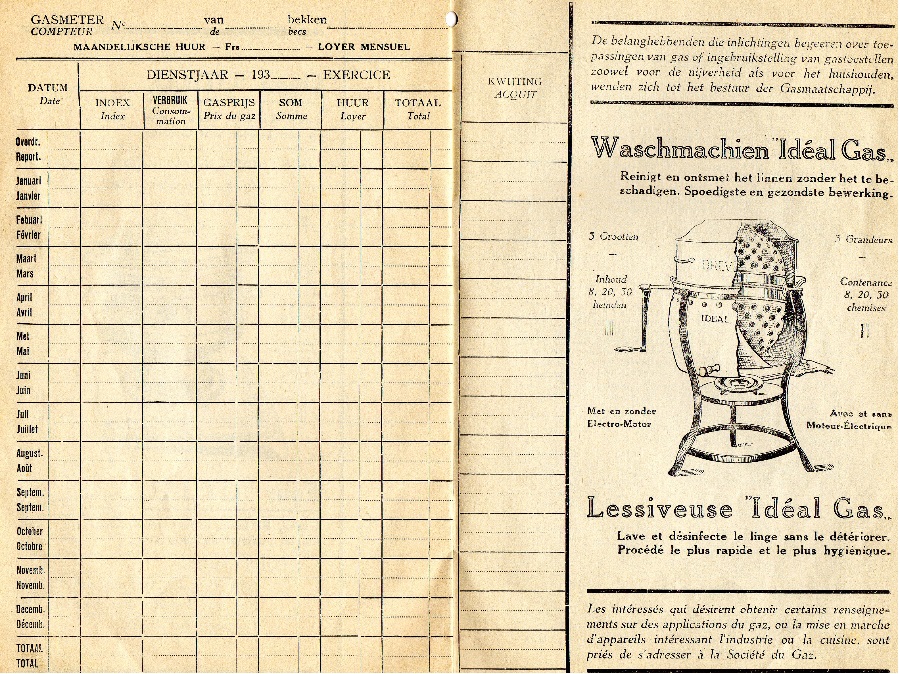 GASMETER No van bekken
COMPTEUR de becs
MAANDELIJKSCHE HUUR — Frs. — LOYER MENSUEL
DATUM
Date
DIENSTJAAR — 193 — EXERCICE
INDEX
Index
VERBRUIK
Consom-
mation
GASPRIJS
Prix du gaz
SOM
Somme
HUUR
Loyer
TOTAAL
Total
KWIJTING
ACQUIT
Overdr.
Report.
Januari
Janvier
Febuari
Février
Maart
Mars
April
Avril
Mei
Mai
Juni
Juin
Juli
Juillet
August.
Août
Septem.
Septem.
October
Octobre
Novemb.
Novemb.
Decemb.
Décemb.
TOTAAL
TOTAL
De belanghebbenden die inlichtingen begeeren over toe-
passingen van gas of ingebruikstelling van gastoestellen
zoowel voor de nijverheid als voor het huishouden,
wenden zich tot het bestuur der Gasmaatschappij.
Waschmachien "Idéal Gas„
Reinigt en ontsmet het linnen zonder het te be-
schadigen. Spoedigste en gezondste bewerking.
3 Grootten
—
Inhoud
8, 20, 30
hemden
3 Grandeurs
—
Contenance
8, 20, 30
chemises
BREV
IDEAL
Met en zonder
Electro-Motor
Avec et sans
Moteur-Électrique
Lessiveuse "Idéal Gas„
Lave et désinfecte le linge sans le détériorer.
Procédé le plus rapide et le plus hygiénique.
Les intéressés qui désirent obtenir certains renseigne-
ments sur des applications du gaz, ou la mise en marche
d'appareils intéressant l'industrie ou la cuisine, sont
priés de s'adresser à la Société du Gaz.